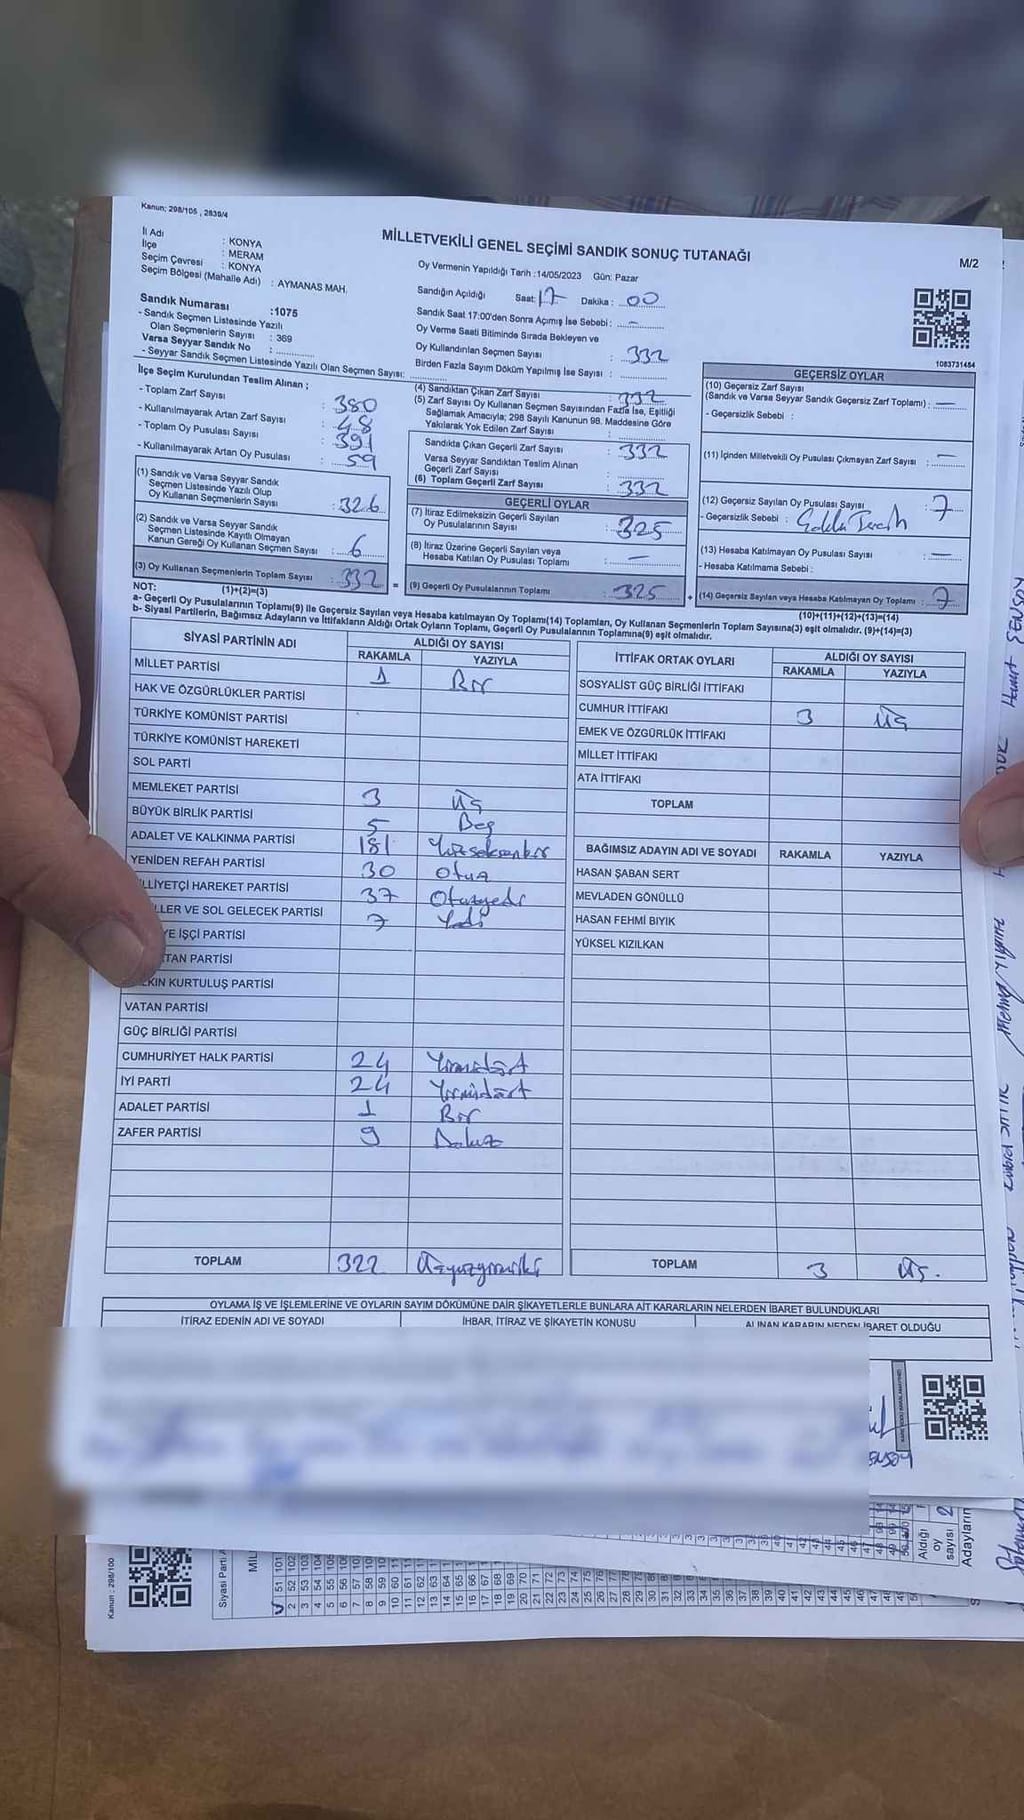 Kanun; 298/105 , 2839/4
MİLLETVEKİLİ GENEL SEÇİMİ SANDIK SONUÇ TUTANAĞI
M/2
İl Adı : KONYA
İlçe : MERAM
Seçim Çevresi : KONYA
Seçim Bölgesi (Mahalle Adı) : AYMANAS MAH.
Sandık Numarası :1075
- Sandık Seçmen Listesinde Yazılı
Olan Seçmenlerin Sayısı : 369
Varsa Seyyar Sandık No :
- Seyyar Sandık Seçmen Listesinde Yazılı Olan Seçmen Sayısı:
Oy Vermenin Yapıldığı Tarih :14/05/2023 Gün: Pazar
Sandığın Açıldığı Saat: 17 Dakika : 00
Sandık Saat 17:00'den Sonra Açımış İse Sebebi : -
Oy Verme Saati Bitiminde Sırada Bekleyen ve
Oy Kullandırılan Seçmen Sayısı : 332
Birden Fazla Sayım Döküm Yapılmış İse Sayısı :
1083731484
İlçe Seçim Kurulundan Teslim Alınan ;
- Toplam Zarf Sayısı : 380
- Kullanılmayarak Artan Zarf Sayısı : 48
- Toplam Oy Pusulası Sayısı : 391
- Kullanılmayarak Artan Oy Pusulası : 59
(1) Sandık ve Varsa Seyyar Sandık
Seçmen Listesinde Yazılı Olup
Oy Kullanan Seçmenlerin Sayısı : 326
(2) Sandık ve Varsa Seyyar Sandık
Seçmen Listesinde Kayıtlı Olmayan
Kanun Gereği Oy Kullanan Seçmen Sayısı : 6
(3) Oy Kullanan Seçmenlerin Toplam Sayısı : 332
(4) Sandıktan Çıkan Zarf Sayısı : 332
(5) Zarf Sayısı Oy Kullanan Seçmen Sayısından Fazla İse, Eşitliği
Sağlamak Amacıyla; 298 Sayılı Kanunun 98. Maddesine Göre
Yakılarak Yok Edilen Zarf Sayısı :
Sandıkta Çıkan Geçerli Zarf Sayısı : 332
Varsa Seyyar Sandıktan Teslim Alınan
Geçerli Zarf Sayısı :
(6) Toplam Geçerli Zarf Sayısı : 332
GEÇERLİ OYLAR
(7) İtiraz Edilmeksizin Geçerli Sayılan
Oy Pusulalarının Sayısı : 325
(8) İtiraz Üzerine Geçerli Sayılan veya
Hesaba Katılan Oy Pusulası Toplamı : -
= (9) Geçerli Oy Pusulalarının Toplamı : 325
GEÇERSİZ OYLAR
(10) Geçersiz Zarf Sayısı
(Sandık ve Varsa Seyyar Sandık Geçersiz Zarf Toplamı) : -
- Geçersizlik Sebebi :
(11) İçinden Milletvekili Oy Pusulası Çıkmayan Zarf Sayısı : -
(12) Geçersiz Sayılan Oy Pusulası Sayısı : 7
- Geçersizlik Sebebi :
(13) Hesaba Katılmayan Oy Pusulası Sayısı : -
- Hesaba Katılmama Sebebi :
+ (14) Geçersiz Sayılan veya Hesaba Katılmayan Oy Toplamı : 7
NOT: (1)+(2)=(3) (10)+(11)+(12)+(13)=(14)
a- Geçerli Oy Pusulalarının Toplamı(9) ile Geçersiz Sayılan veya Hesaba katılmayan Oy Toplamı(14) Toplamları, Oy Kullanan Seçmenlerin Toplam Sayısına(3) eşit olmalıdır. (9)+(14)=(3)
b- Siyasi Partilerin, Bağımsız Adayların ve İttifakların Aldığı Ortak Oyların Toplamı, Geçerli Oy Pusulalarının Toplamına(9) eşit olmalıdır.
SİYASİ PARTİNİN ADI ALDIĞI OY SAYISI
RAKAMLA YAZIYLA
MİLLET PARTİSİ 1 Bir
HAK VE ÖZGÜRLÜKLER PARTİSİ
TÜRKİYE KOMÜNİST PARTİSİ
TÜRKİYE KOMÜNİST HAREKETİ
SOL PARTİ
MEMLEKET PARTİSİ 3 Üç
BÜYÜK BİRLİK PARTİSİ 5 Beş
ADALET VE KALKINMA PARTİSİ 181 Yüzseksenbir
YENİDEN REFAH PARTİSİ 30 Otuz
LLİYETÇİ HAREKET PARTİSİ 37 Otuzyedi
LLER VE SOL GELECEK PARTİSİ 7 Yedi
YE İŞÇİ PARTİSİ
TAN PARTİSİ
LKIN KURTULUŞ PARTİSİ
VATAN PARTİSİ
GÜÇ BİRLİĞİ PARTİSİ
CUMHURİYET HALK PARTİSİ 24 Yirmidört
İYİ PARTİ 24 Yirmidört
ADALET PARTİSİ 1 Bir
ZAFER PARTİSİ 9 Dokuz
TOPLAM 322 Üçyüzyirmiiki
İTTİFAK ORTAK OYLARI ALDIĞI OY SAYISI
RAKAMLA YAZIYLA
SOSYALİST GÜÇ BİRLİĞİ İTTİFAKI
CUMHUR İTTİFAKI 3 Üç
EMEK VE ÖZGÜRLÜK İTTİFAKI
MİLLET İTTİFAKI
ATA İTTİFAKI
TOPLAM
BAĞIMSIZ ADAYIN ADI VE SOYADI RAKAMLA YAZIYLA
HASAN ŞABAN SERT
MEVLADEN GÖNÜLLÜ
HASAN FEHMİ BIYIK
YÜKSEL KIZILKAN
TOPLAM 3 Üç.
OYLAMA İŞ VE İŞLEMLERİNE VE OYLARIN SAYIM DÖKÜMÜNE DAİR ŞİKAYETLERLE BUNLARA AİT KARARLARIN NELERDEN İBARET BULUNDUKLARI
İTİRAZ EDENİN ADI VE SOYADI İHBAR, İTİRAZ VE ŞİKAYETİN KONUSU ALINAN KARARIN NEDEN İBARET OLDUĞU
Kanun : 298/100
Siyasi Parti A
Aldığı
oy
sayısı 2
Adayların